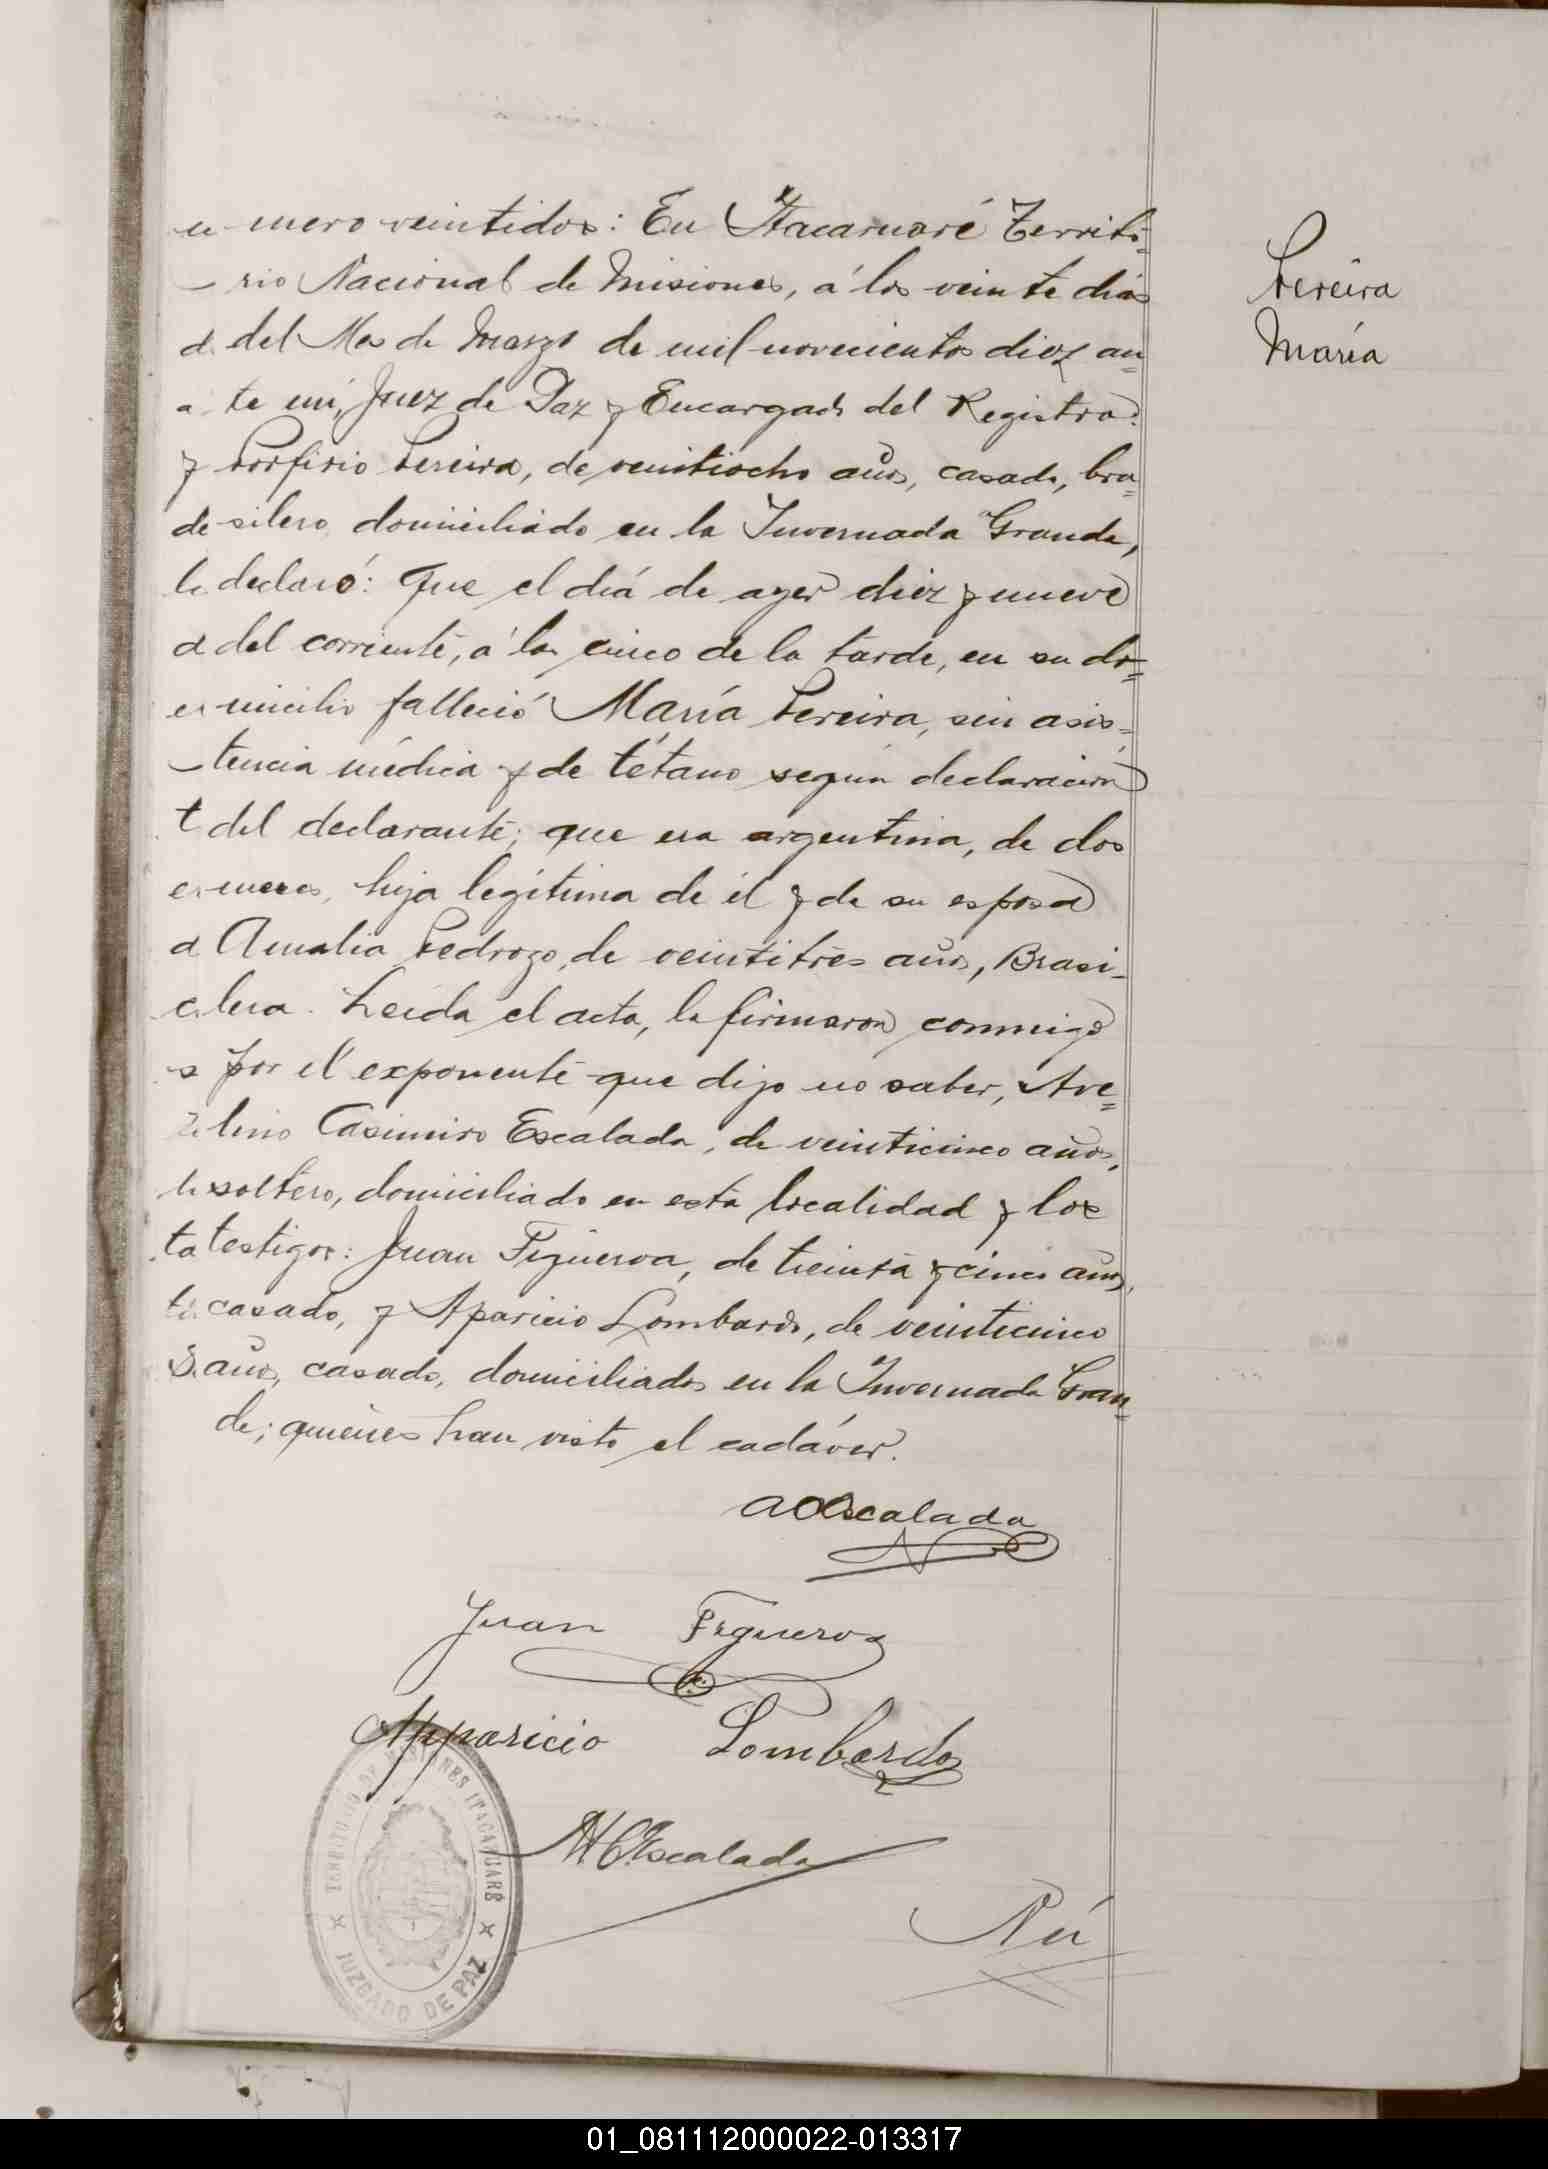 mero veintidos: En Itacaruaré Territo=
rio Nacional de Misiones, á los veinte dias
del Mes de Marzo de mil novecientos diez an=
te mí, Juez de Paz y Encargado del Registro:
Porfirio Pereira, de veintiocho años, casado, bra=
silero, domiciliado en la Invernada Grande,
declaró: Que el diá de ayer diez y nueve
del corriente, á las cinco de la tarde, en su do=
micilio falleció María Pereira, sin asis=
tencia médica y de tétano según declaración
del declarante; que era argentina, de dos
meses, hija legítima de él y de su esposa
Amalia Pedrozo, de veintitrés años, Brasi-
lera. Leída el acta, la firmaron conmigo
por el exponente que dijo no saber, Ave=
lino Casimiro Escalada, de veinticinco años,
soltero, domiciliado en esta localidad y los
testigos: Juan Figueroa, de treinta y cinco años,
casado, y Aparicio Lombardo, de veinticinco
años, casado, domiciliados en la Invernada Gran=
de; quienes han visto el cadáver.
Pereira
María
Escalada
Juan Figueroa
Apparicio Lombardo
Escalada
TERRITORIO DE MISIONES ITACARUARÉ
JUZGADO DE PAZ
01_081112000022-013317